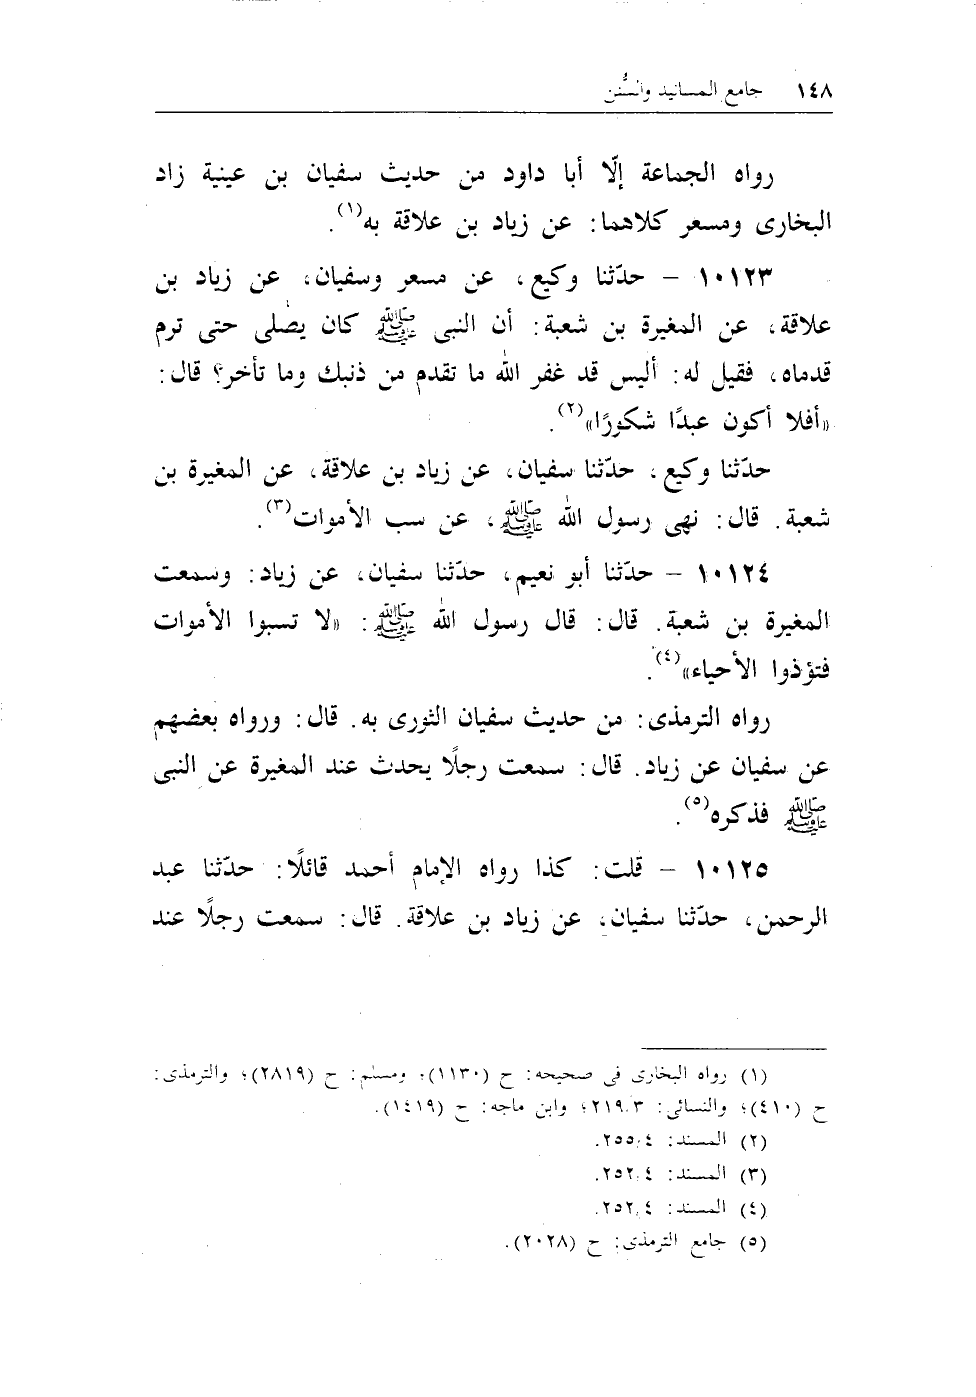 ١٤٨ جامع المسانيد والسُّنن
رواه الجماعة إلّا أبا داود من حديث سفيان بن عينية زاد
البخارى ومسعر كلاهما: عن زياد بن علاقة به(١).
١٠١٢٣ – حدّثنا وكيع، عن مسعر وسفيان، عن زياد بن
علاقة، عن المغيرة بن شعبة: أن النبى ﷺ كان يصلى حتى ترم
قدماه، فقيل له: أليس قد غفر الله ما تقدم من ذنبك وما تأخر؟ قال:
«أفلا أكون عبدًا شكورًا»(٢).
حدّثنا وكيع، حدّثنا سفيان، عن زياد بن علاقة، عن المغيرة بن
شعبة. قال: نهى رسول الله ﷺ، عن سب الأموات(٣).
١٠١٢٤ – حدّثنا أبو نعيم، حدّثنا سفيان، عن زياد: وسمعت
المغيرة بن شعبة. قال: قال رسول الله ﷺ: «لا تسبوا الأموات
فتؤذوا الأحياء»(٤).
رواه الترمذى: من حديث سفيان الثورى به. قال: ورواه بعضهم
عن سفيان عن زياد. قال: سمعت رجلًا يحدث عند المغيرة عن النبى
ﷺ فذكره(٥).
١٠١٢٥ – قلت: كذا رواه الإمام أحمد قائلًا: حدّثنا عبد
الرحمن، حدّثنا سفيان، عن زياد بن علاقة. قال: سمعت رجلًا عند
(١) رواه البخارى فى صحيحه: ح (١١٣٠)؛ ومسلم: ح (٢٨١٩)؛ والترمذى:
ح (٤١٠)؛ والنسائى: ٢١٩/٣؛ وابن ماجه: ح (١٤١٩).
(٢) المسند: ٢٥٥/٤.
(٣) المسند: ٢٥٢/٤.
(٤) المسند: ٢٥٢/٤.
(٥) جامع الترمذى: ح (٢٠٢٨).